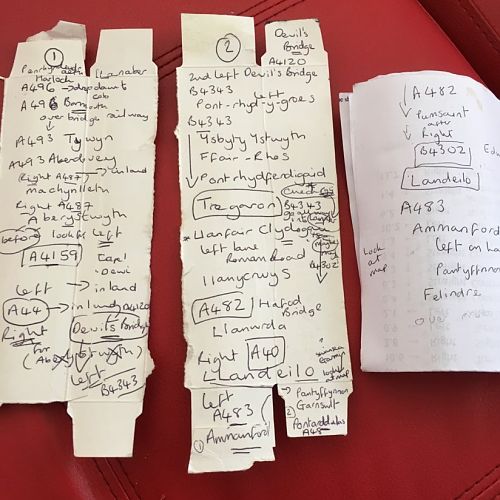 1
Penrhyndeudraeth
Harlech
A496 → dropdown to
A496 Barmouth
over bridge railway
A493 Tywyn
A493 Aberdovey
Right A487 → inland
machynlleth
Right A487
Aberystwyth
before look for left
A4159
Capel
Dewi
left → inland
A44 → inland A4120
Right
Devil's Bridge
for
left
B4343
Llanaber
2
Devil's
Bridge
A4120
2nd left Devil's Bridge
B4343 left
Pont-rhyd-y-groes
B4343
Ysbyty Ystwyth
Ffair-Rhos
Pontrhydfendigaid
Tregaron
B4343
Llanfair Clydogau
left lane
Roman Road
B4302
llanycrwys
A482 Hafod
Bridge
Llanwrda
Right A40
Llandeilo
look
at map
left
A483
1 Ammanford
→ Pantyffynnon
Garnswllt
2 Pontarddulais
A48
A482
Pumsaint
after
Right
B4302
Llandeilo
A483
Ammanford
left on
Look
at
map
Pantyffynnon
Felindre
over